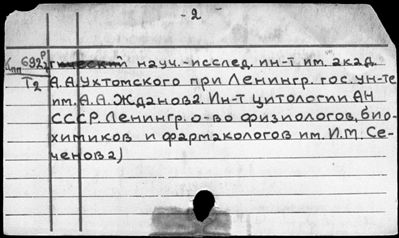 - 2 -
692 гический науч.-исслед. ин-т им. акад.
Т2 А.А. Ухтомского при Ленингр. гос. ун-те
им. А.А. Жданова. Ин-т цитологии АН
СССР. Ленингр. о-во физиологов, био-
химиков и фармакологов им. И.М. Се-
ченова)